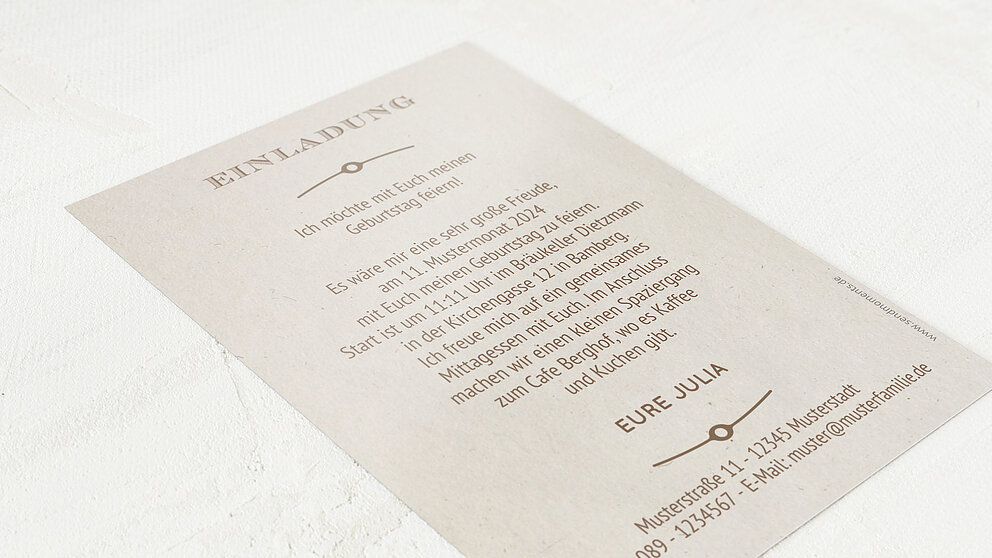 EINLADUNG
Ich möchte mit Euch meinen
Geburtstag feiern!
Es wäre mir eine sehr große Freude,
am 11. Mustermonat 2024
mit Euch meinen Geburtstag zu feiern.
Start ist um 11:11 Uhr im Bräukeller Dietzmann
in der Kirchengasse 12 in Bamberg.
Ich freue mich auf ein gemeinsames
Mittagessen mit Euch. Im Anschluss
machen wir einen kleinen Spaziergang
zum Cafe Berghof, wo es Kaffee
und Kuchen gibt.
EURE JULIA
Musterstraße 11 - 12345 Musterstadt
089 - 1234567 - E-Mail: muster@musterfamilie.de
www.sendmoments.de